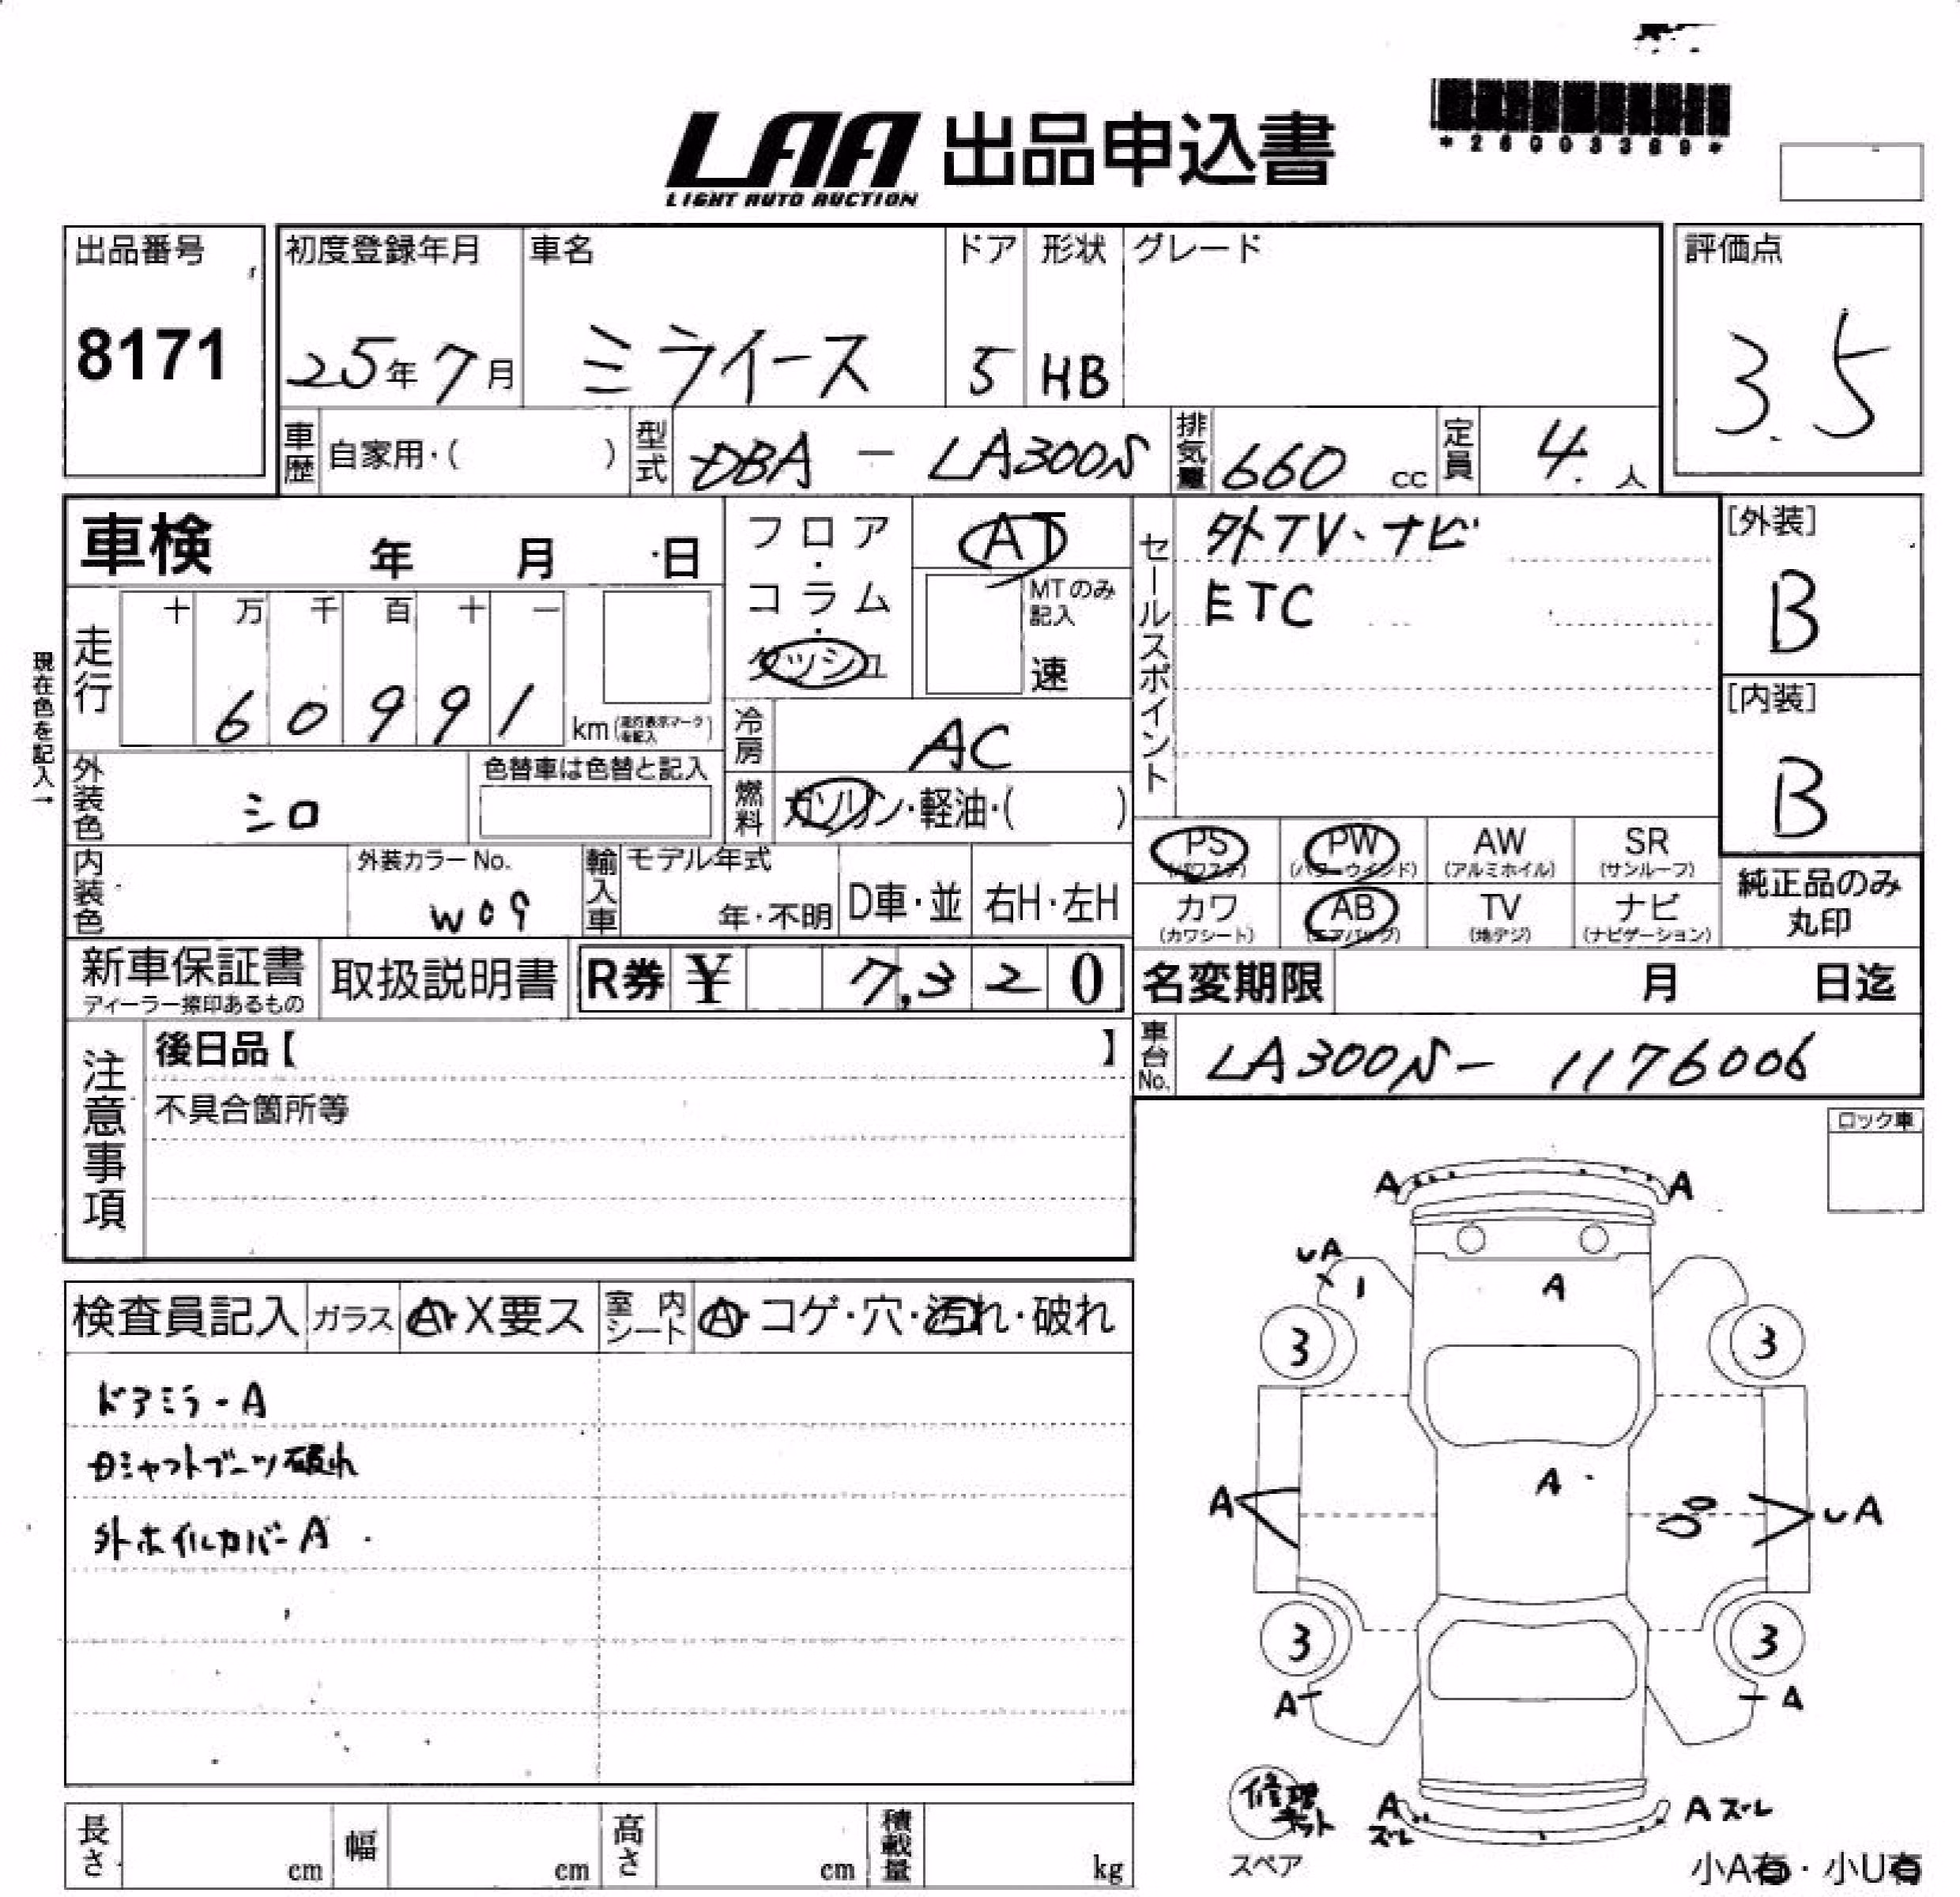 *26003389*
LAA 出品申込書
LIGHT AUTO AUCTION
出品番号 8171
初度登録年月 25年7月
車名 ミライース
ドア 5
形状 HB
グレード
評価点 3.5
車歴 自家用・( )
型式 DBA - LA300S
排気量 660 cc
定員 4. 人
車検 年 月 日
フロア・コラム・ダッシュ
AT
MTのみ記入
速
セールスポイント
外TV、ナビ
ETC
[外装]
B
[内装]
B
現在色を記入→
走行 十 万 千 百 十 一
60991 km
冷房 AC
外装色 シロ
色替車は色替と記入
燃料 ガソリン・軽油・( )
内装色
外装カラーNo.
W09
輸入車 モデル年式
年・不明
D車・並
右H・左H
PS (パワステ) PW (パワーウインド) AW (アルミホイル) SR (サンルーフ)
カワ (カワシート) AB (エアバッグ) TV (地デジ) ナビ (ナビゲーション)
純正品のみ
丸印
新車保証書
ディーラー捺印あるもの
取扱説明書
R券 ¥ 7,320
名変期限 月 日迄
車台No. LA300S- 1176006
注意事項
後日品【 】
不具合箇所等
ロック車
検査員記入 ガラス A・X要ス 室内シート A・コゲ・穴・汚れ・破れ
ドアミラーA
Dシャフトブーツ破れ
外ホイルカバーA
A A
UA
A
3 3
A
A UA
3 3
A A
修理キット
スペア
A ズレ
A ズレ
小A有・小U有
長さ cm 幅 cm 高さ cm 積載量 kg